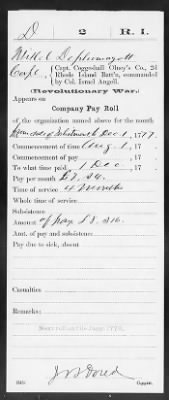 D 2 R. I.
Capt. Coggeshall Olney's Co., 2d
Rhode Island Batt'n, commanded
by Col. Israel Angell.
Corpl
(Revolutionary War.)
Appears on
Company Pay Roll
of the organization named above for the month
Dec 1, 1777.
Commencement of time Aug 1, 17
Commencement of pay, 17
To what time paid 1 Dec, 17
Pay per month £2, 4s.
Time of service 4 Months
Whole time of service
Subsistence
Amount of pay £8. s16.
Amt. of pay and subsistence
Pay due to sick, absent
Casualties
Remarks:
Copyist.